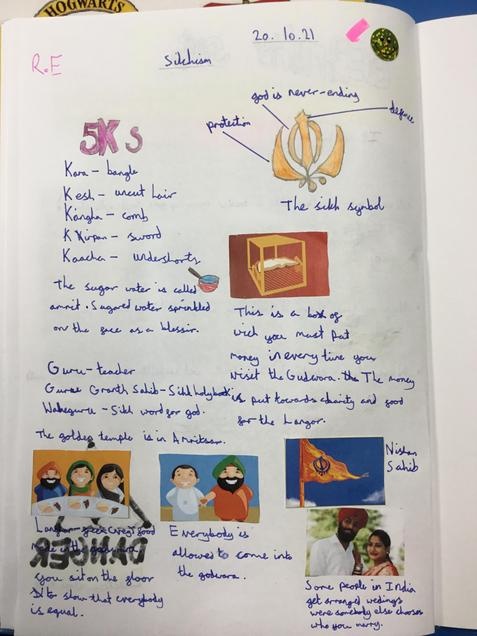 HOGWARTS
20.10.21
R.E
Sikhism
god is never-ending
defence
protection
5Ks
Kara - bangle
Kesh - uncut hair
Kangha - comb
Kirpan - sword
Kaacha - undershorts
The sikh symbol
The sugar water is called
amrit. Sugared water sprinkled
on the face as a blessin.
This is a box of
wich you must put
money in every time you
visit the Gudwora. The money
is put towards charity and food
for the Langar.
Guru - teacher
Guru Granth Sahib - Sikh holy book
Waheguru - Sikh word for god.
The golden temple is in Amritsar.
Nishan
Sahib
Langar - free (veg) food
made in the
you sit on the floor
to show that everybody
is equal.
DANGER
Everybody is
allowed to come into
the godwara.
Some people in India
get arranged wedings
were somebody else chooses
who you marry.